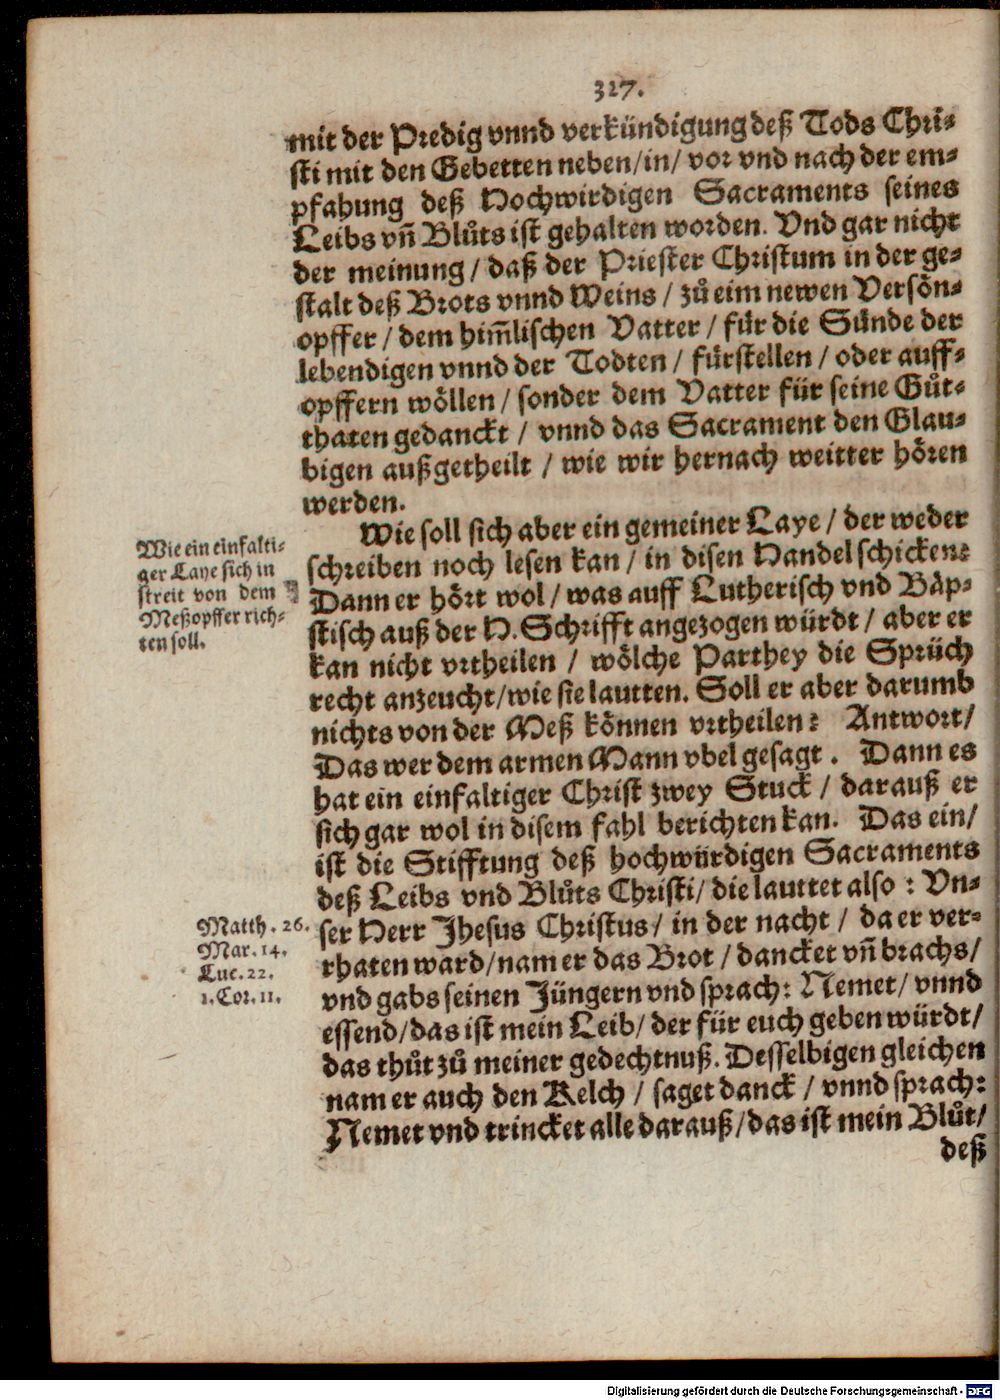 317.
mit der Predig vnnd verkündigung deß Tods Chri-
sti mit den Gebetten neben/in/ vor vnd nach der em-
pfahung deß Hochwirdigen Sacraments seines
Leibs vñ Blůts ist gehalten worden. Vnd gar nicht
der meinung / daß der Priester Christum in der ge-
stalt deß Brots vnnd Weins / zů eim newen Versön-
opffer / dem him̃lischen Vatter / für die Sünde der
lebendigen vnnd der Todten / fürstellen / oder auff-
opffern wöllen / sonder dem Vatter für seine Gůt-
thaten gedanckt / vnnd das Sacrament den Glau-
bigen außgetheilt / wie wir hernach weitter hören
werden.
Wie soll sich aber ein gemeiner Laye / der weder
schreiben noch lesen kan / in disen Handel schicken?
Dann er hört wol / was auff Lutherisch vnd Bäp-
stisch auß der H. Schrifft angezogen würdt / aber er
kan nicht vrtheilen / wölche Parthey die Sprüch
recht anzeucht/wie sie lautten. Soll er aber darumb
nichts von der Meß können vrtheilen? Antwort/
Das wer dem armen Mann vbel gesagt. Dann es
hat ein einfaltiger Christ zwey Stuck / darauß er
sich gar wol in disem fahl berichten kan. Das ein/
ist die Stifftung deß hochwürdigen Sacraments
deß Leibs vnd Blůts Christi/ die lauttet also : Vn-
ser Herr Jhesus Christus/ in der nacht / da er ver-
rhaten ward/nam er das Brot / dancket vñ brachs/
vnd gabs seinen Jüngern vnd sprach: Nemet/ vnnd
essend/das ist mein Leib/ der für euch geben würdt/
das thůt zů meiner gedechtnuß. Desselbigen gleichen
nam er auch den Kelch / saget danck / vnnd sprach:
Nemet vnd trincket alle darauß/das ist mein Blůt/
deß
Wie ein einfalti-
ger Laye sich in
streit von dem
Meßopffer rich-
ten soll.
Matth. 26.
Mar. 14.
Luc. 22.
1. Cor. 11.
Digitalisierung gefördert durch die Deutsche Forschungsgemeinschaft - DFG